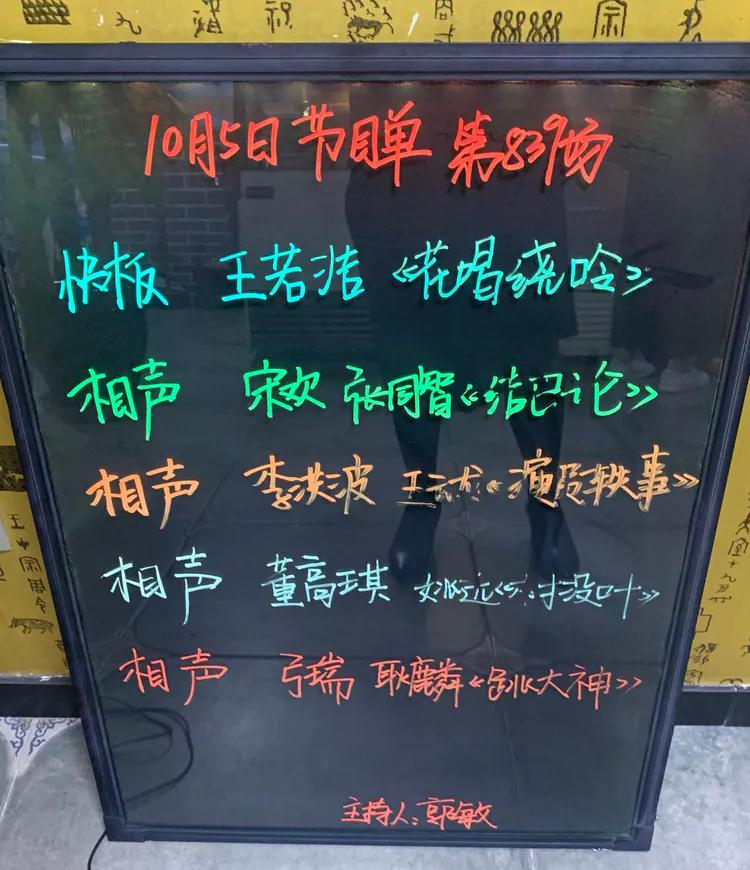 10月5日节目单 第839场
快板 王若洁 《花唱绕口令》
相声 宋欢 张同智《结巴论》
相声 李洪波 王云龙《演员轶事》
相声 董高琪 姚远《
相声 弓瑞 耿麟《跳大神》
主持人：郭敏